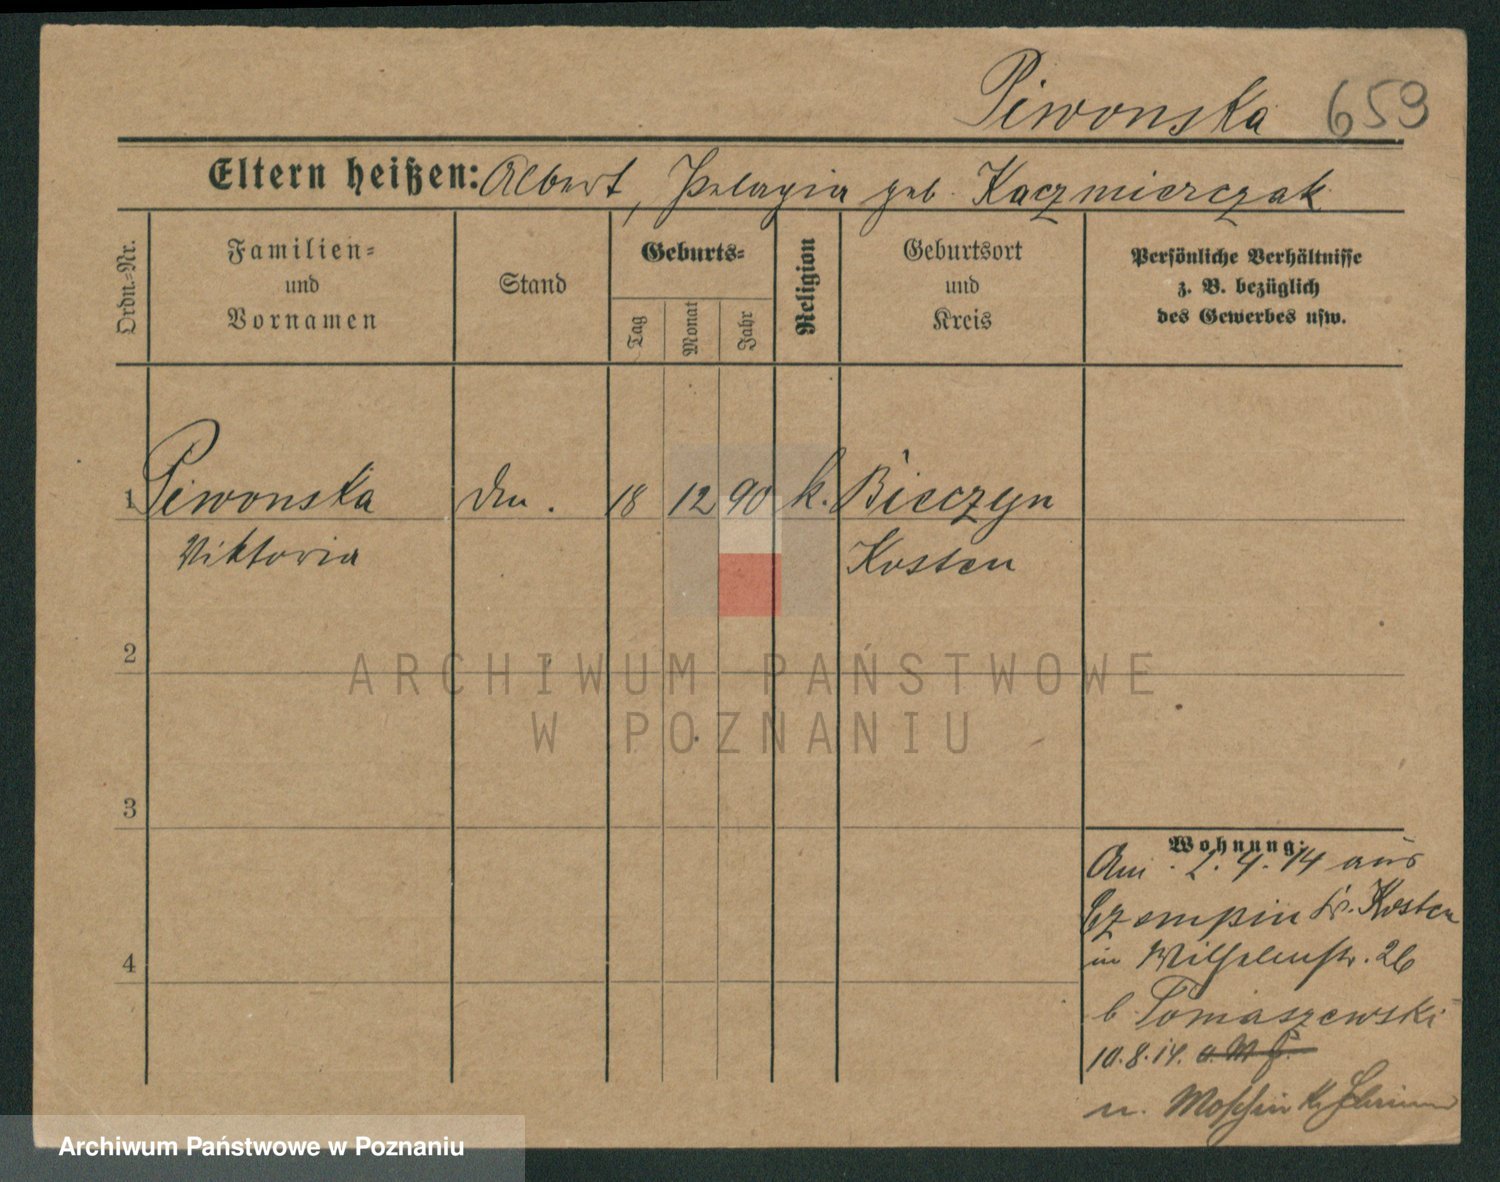 Piwonska 659
Eltern heißen: Albert, Pelagia geb. Kaczmierczak
Ordn.-Nr.
Familien-
und
Vornamen
Stand
Geburts-
Tag
Monat
Jahr
Religion
Geburtsort
und
Kreis
Persönliche Verhältnisse
z. B. bezüglich
des Gewerbes usw.
1 Piwonska 18 12 90 k. Bieczyn
Viktoria Kosten
2
ARCHIWUM PAŃSTWOWE
W POZNANIU
3
4
Wohnung:
Am 2.4.14 aus
Czempin Kr. Kosten
in Wilhelmstr. 26
b Tomaszewski
10.8.14.
n. Moschin Kr Schrimm
Archiwum Państwowe w Poznaniu